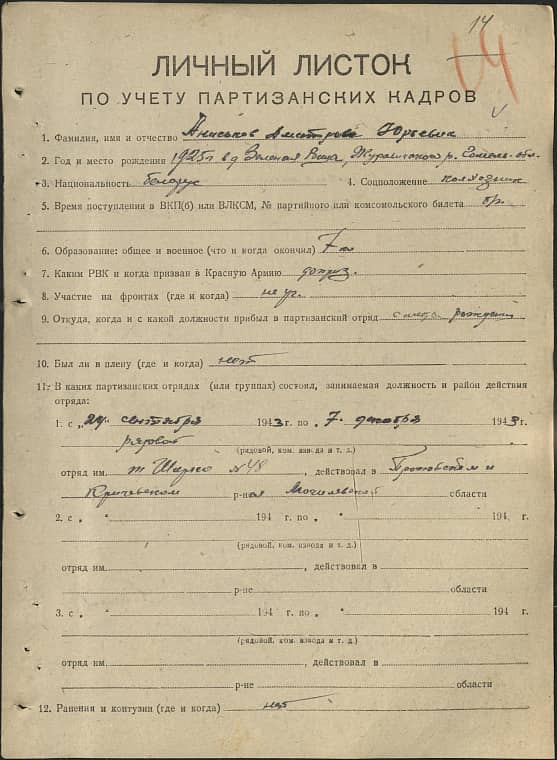 14
14
ЛИЧНЫЙ ЛИСТОК
ПО УЧЕТУ ПАРТИЗАНСКИХ КАДРОВ
1. Фамилия, имя и отчество Аниськов Дмитрий Юрьевич
2. Год и место рождения 1925г. в д Зеленая Журавичского р. Гомельс. обл.
3. Национальность белорус 4. Соцположение колхозник
5. Время поступления в ВКП(б) или ВЛКСМ, № партийного или комсомольского билета
6. Образование: общее и военное (что и когда окончил) 7 кл
7. Каким РВК и когда призван в Красную Армию доприз.
8. Участие на фронтах (где и когда) не уч.
9. Откуда, когда и с какой должности прибыл в партизанский отряд с места рождения
10. Был ли в плену (где и когда) нет
11. В каких партизанских отрядах (или группах) состоял, занимаемая должность и район действия
отряда:
1. с „29“ сентября 1943 г. по „7“ декабря 1943 г.
рядовой
(рядовой, ком. взвода и т. д.)
отряд им. № 48, действовал в и
Кричевском р-нах Могилевской области
2. с „ “ 194 г. по „ “ 194 г.
(рядовой, ком. взвода и т. д.)
отряд им. , действовал в
р-не области
3. с „ “ 194 г. по „ “ 194 г.
(рядовой, ком. взвода и т. д.)
отряд им. , действовал в
р-не области
12. Ранения и контузии (где и когда) нет